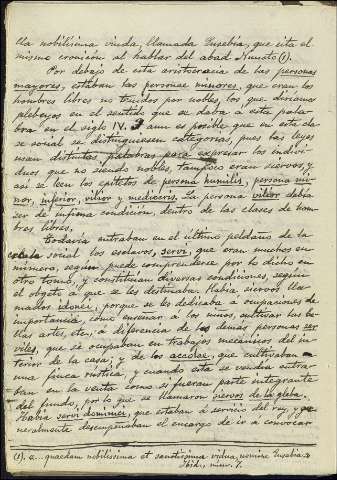 lla nobilísima viuda, llamada Eusebia, que cita el
mismo cronicón al hablar del abad Nuncto (1).
Por debajo de esta aristocracia de las personas
mayores, estaban las personae minores, que eran los
hombres libres no tenidos por nobles, los que diríamos
plebeyos en el sentido que se daba a esta pala-
bra en el siglo IV. Y aun es posible que en esta cla-
se social se distinguiesen categorías, pues las leyes
usan distintas palabras para expresar los indivi-
duos que no siendo nobles, tampoco eran siervos, y
así se leen los epítetos de persona humilis, persona mi-
nor, inferior, vilior y mediocris. La persona vilior debía
ser de ínfima condición, dentro de las clases de hom-
bres libres.
Todavía entraban en el último peldaño de la
escala social los esclavos, servi, que eran muchos en
número, según puede comprenderse por lo dicho en
otro tomo, y constituían diversas condiciones, según
el objeto a que se les destinaba. Había siervos lla-
mados idonei, porque se les dedicaba a ocupaciones de
importancia como enseñar a los niños, cultivar las be-
llas artes, etc., a diferencia de las demás personas ser-
viles, que se ocupaban en trabajos mecánicos del in-
terior de la casa; y de los accolae, que cultivaban
una finca rústica, y cuando esta se vendía entra-
ban en la venta como si fueran parte integrante
del fundo, por lo que se llamaron siervos de la gleba.
Había servi dominici, que estaban al servicio del rey, y ge-
neralmente desempeñaban el encargo de ir a convocar
(1). a... quaedam nobilissima et sanctissima vidua, nomine Eusebia.»
Ibid., núm. 7.